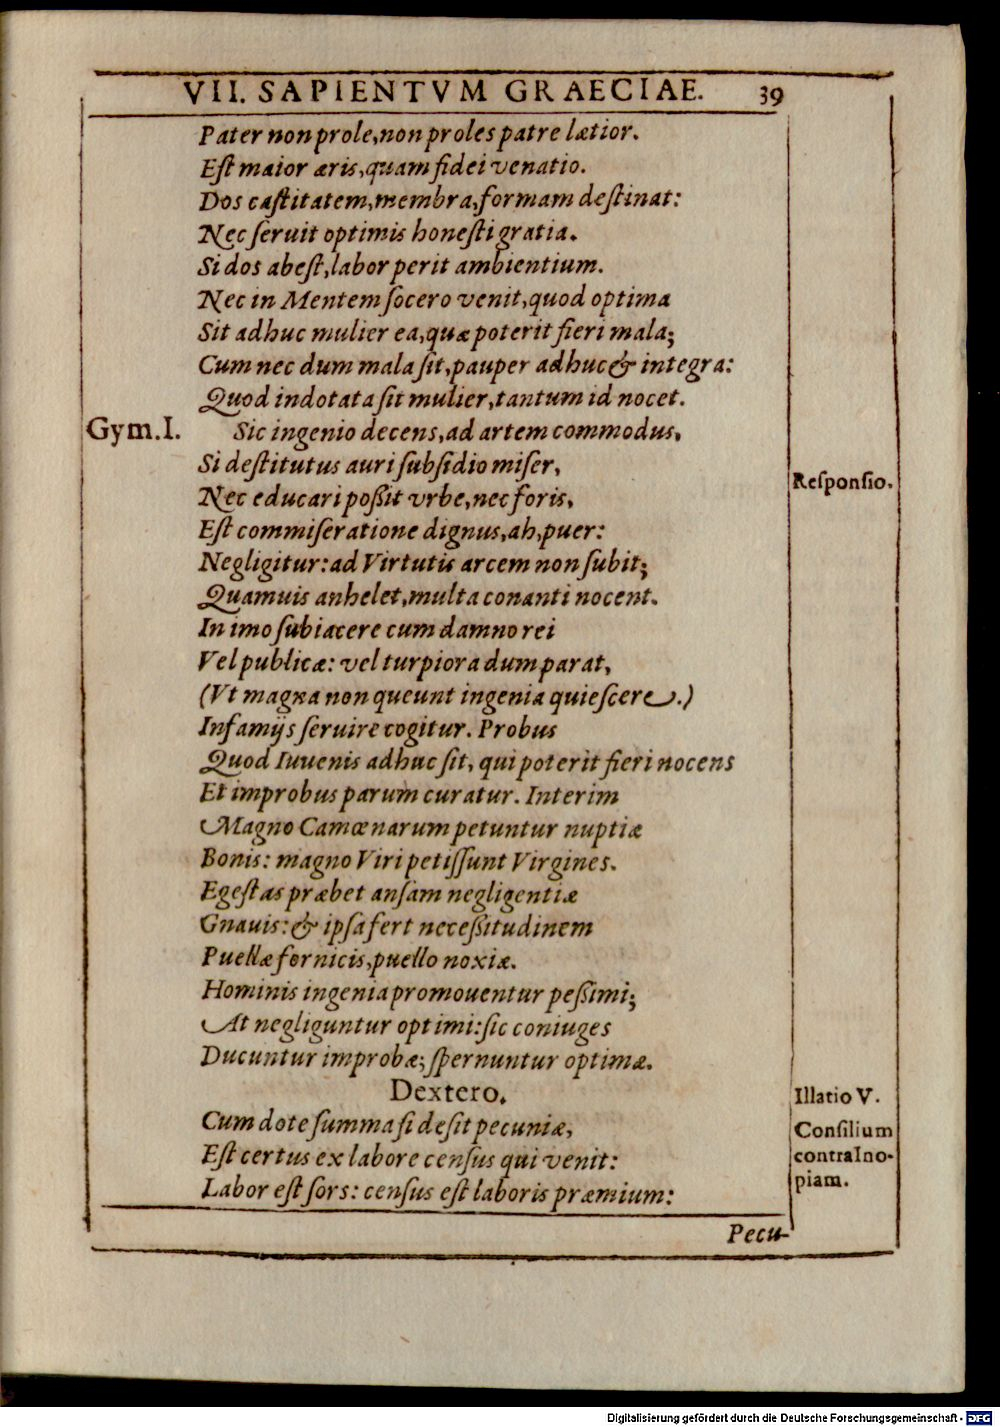 VII. SAPIENTVM GRAECIAE. 39
Pater non prole, non proles patre lætior.
Est maior æris, quam fidei venatio.
Dos castitatem, membra, formam destinat:
Nec seruit optimis honesti gratia.
Si dos abest, labor perit ambientium.
Nec in Mentem socero venit, quod optima
Sit adhuc mulier ea, quæ poterit fieri mala;
Cum nec dum mala sit, pauper adhuc & integra:
Quod indotata sit mulier, tantum id nocet.
Gym. I. Sic ingenio decens, ad artem commodus,
Si destitutus auri subsidio miser,
Responsio.
Nec educari poßit vrbe, nec foris,
Est commiseratione dignus, ah, puer:
Negligitur: ad Virtutis arcem non subit;
Quamuis anhelet, multa conanti nocent.
In imo subiacere cum damno rei
Vel publicæ: vel turpiora dum parat,
(Vt magna non queunt ingenia quiescere.)
Infamijs seruire cogitur. Probus
Quod Iuuenis adhuc sit, qui poterit fieri nocens
Et improbus parum curatur. Interim
Magno Camœnarum petuntur nuptiæ
Bonis: magno Viri petissunt Virgines.
Egestas præbet ansam negligentiæ
Gnauis: & ipsa fert neceßitudinem
Puellæ fornicis, puello noxiæ.
Hominis ingenia promouentur peßimi;
At negliguntur optimi: sic coniuges
Ducuntur improbæ; spernuntur optimæ.
Dextero.
Illatio V.
Cum dote summa si desit pecuniæ,
Consilium
Est certus ex labore census qui venit:
contra Ino-
piam.
Labor est sors: census est laboris præmium:
Pecu-
Digitalisierung gefördert durch die Deutsche Forschungsgemeinschaft - DFG